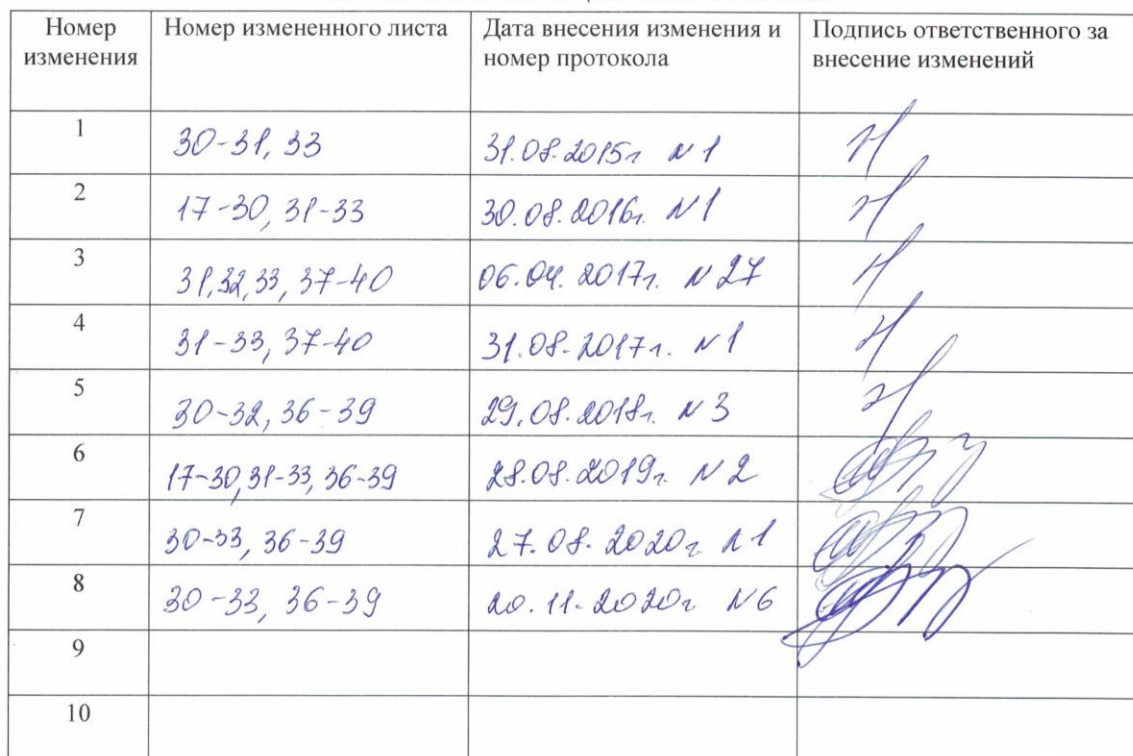 Номер изменения Номер измененного листа Дата внесения изменения и номер протокола Подпись ответственного за внесение изменений
1 30-31, 33 31.08.2015г N1
2 17-30, 31-33 30.08.2016г. N1
3 31,32,33, 37-40 06.04.2017г. N27
4 31-33, 37-40 31.08.2017г. N1
5 30-32, 36-39 29.08.2018г. N3
6 17-30,31-33,36-39 28.08.2019г. N2
7 30-33, 36-39 27.08.2020г N1
8 30-33, 36-39 20.11.2020г N6
9
10